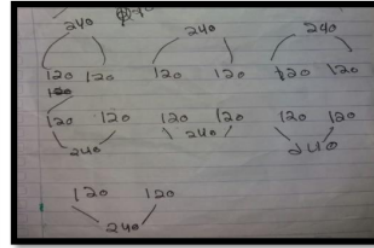 240 240 240
120 120 120 120 120 120
120
120 120 120 120 120 120
240 240 240
120 120
240